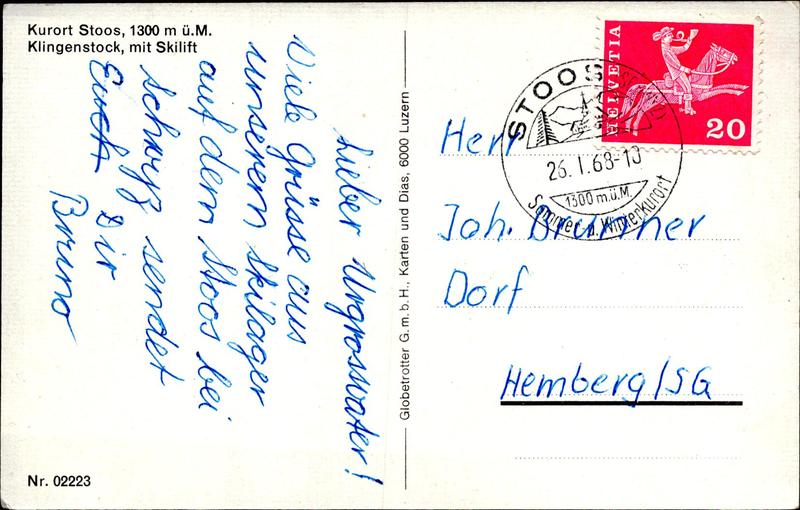 Kurort Stoos, 1300 m ü.M.
Klingenstock, mit Skilift
Lieber Urgrossvater!
Viele Grüsse aus
unserem Skilager
auf dem Stoos bei
Schwyz sendet
Euch Dir
Bruno
Nr. 02223
Globetrotter G.m.b.H., Karten und Dias, 6000 Luzern
HELVETIA
20
STOOS
26. 1. 68-10
1300 m ü.M.
Sommer u. Winterkurort
Herr
Joh. Brunner
Dorf
Hemberg/SG